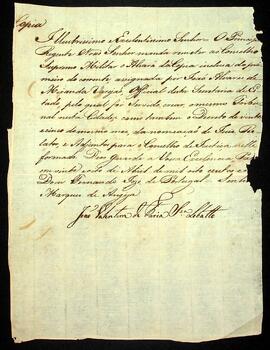 Copia
Illustrissimo e Excelentissimo Senhor = O Principe
Regente Nosso Senhor manda remetter ao Conselho
Supremo Militar o Alvará da Copia inclusa do pri-
meiro do corrente assignada por José Alvares de
Miranda Varejão, Official desta Secretaria de Es-
tado pelo qual foi Servido crear o mesmo Tribu-
nal nesta Cidade, como tambem o Decreto de vinte
cinco do mesmo mez da nomeação de Juiz Re-
lator, e Adjuntos para o Conselho de Justiça
formado Deos Guarde a Vossa Excellencia Pa
em vinte de Abril de mil oito centos e
Dom Fernando José de Portugal = Senhor
Marquez de Angeja
João Valentim de Faria Lobatto